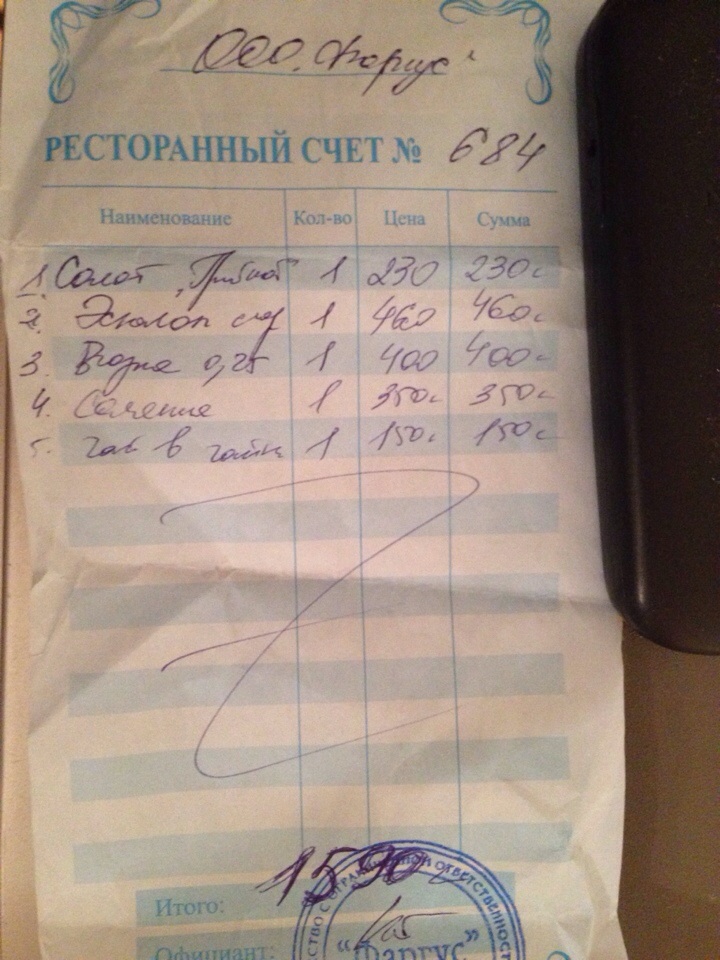 ООО "Фаргус"
РЕСТОРАННЫЙ СЧЕТ № 684
Наименование Кол-во Цена Сумма
1. Салат "Грибной" 1 230 230=
2. Эскалоп 1 460 460=
3. Водка 0,25 1 400 400=
4. Соленые 1 350= 350=
5. Чай в чайн 1 150= 150=
1590=
Итого:
Официант:
СТВО С ОГРАНИЧЕННОЙ ОТВЕТСТВЕННОСТ
"Фаргус"